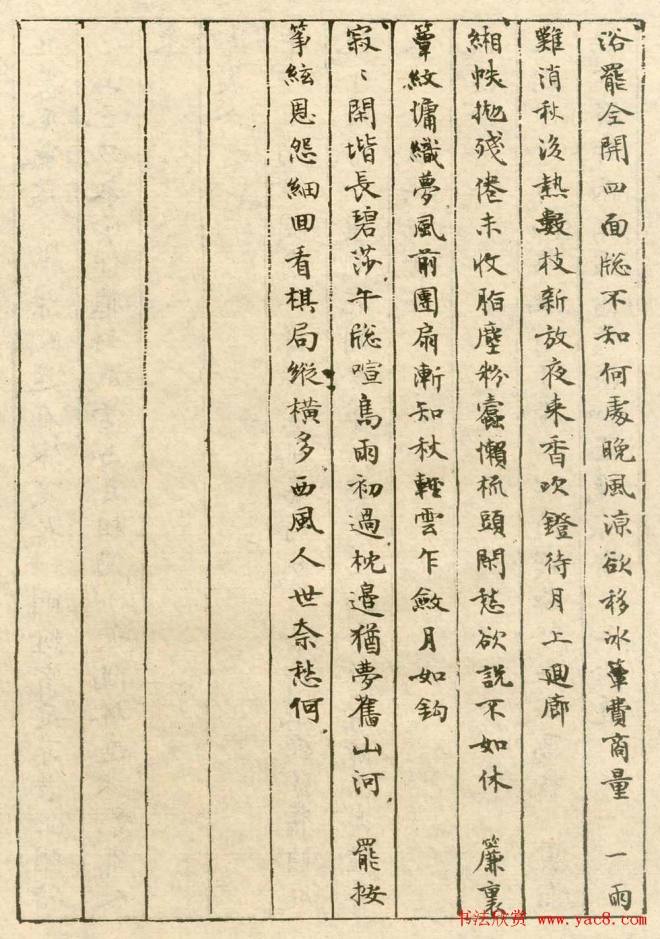 浴罷全開四面牎不知何處晚風涼欲移冰簟費商量　一雨
難消秋後熱數枝新放夜來香吹鐙待月上廻廊
緗帙抛殘倦未收脂塵粉蠹懶梳頭閑愁欲說不如休　簾裏
簟紋慵織夢風前團扇漸知秋輕雲乍斂月如鈎
寂〻閑堦長碧莎午牎喧鳥雨初過枕邊猶夢舊山河　罷按
筝絃恩怨細回看棋局縱橫多西風人世奈愁何
书法欣赏：www.yac8.com